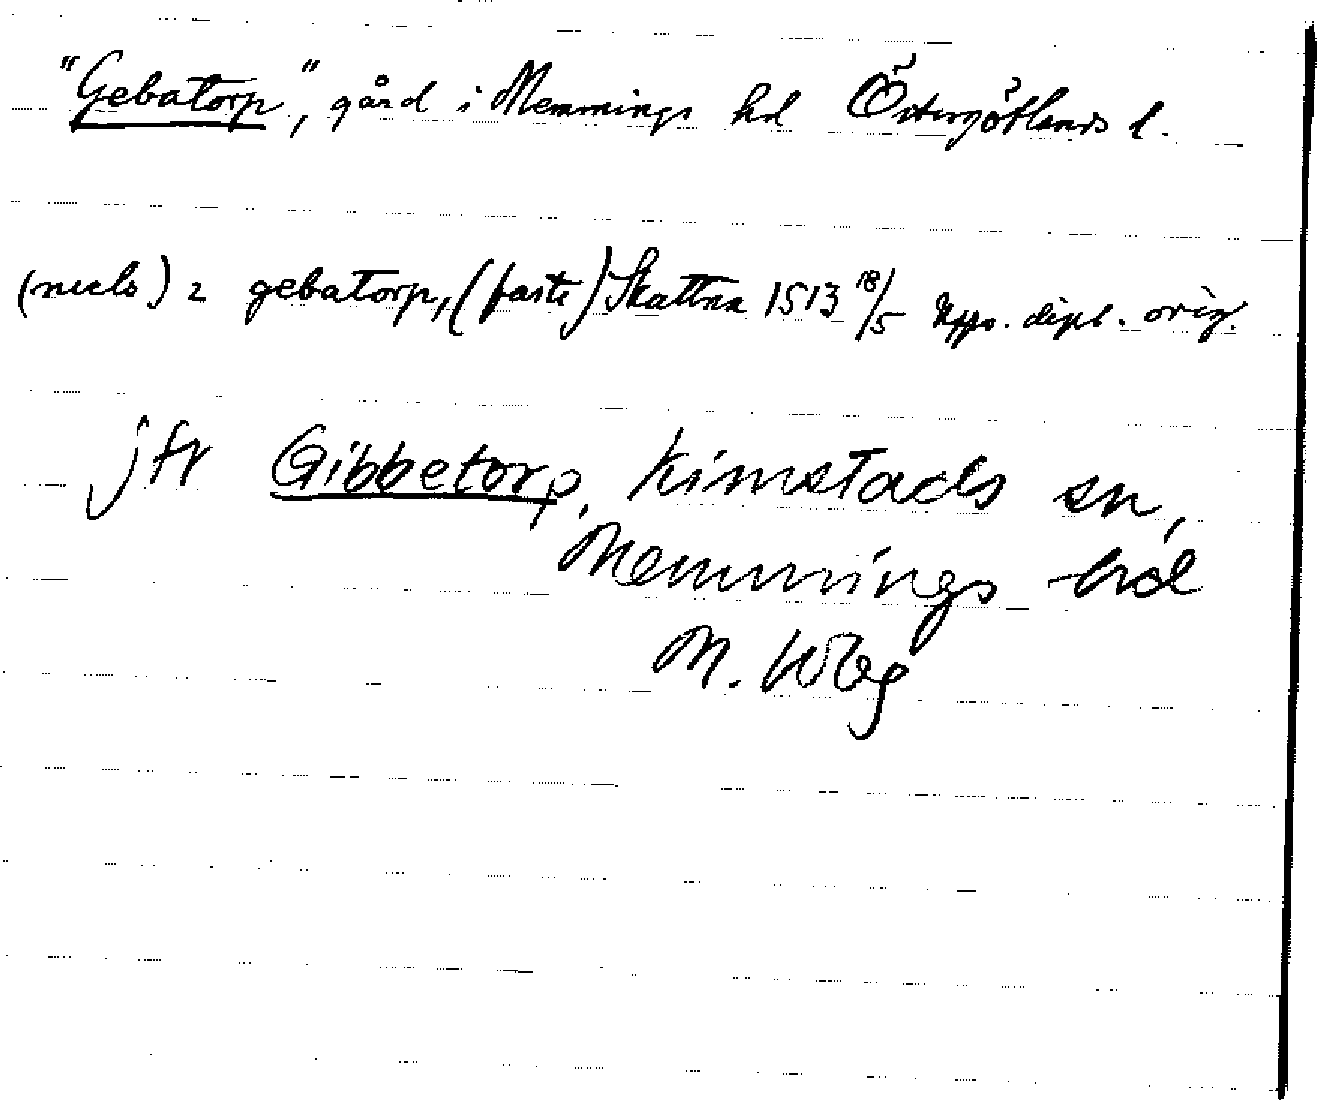 "Gebatorp", gård i Memmings hd Östergötlands l.
(niels) 2 gebatorp, (faste) Skattna 1513 18/5 Upps. dipl. orig.
jfr Gibbetorp, Kimstads sn,
Memmings hd
M. Wbg